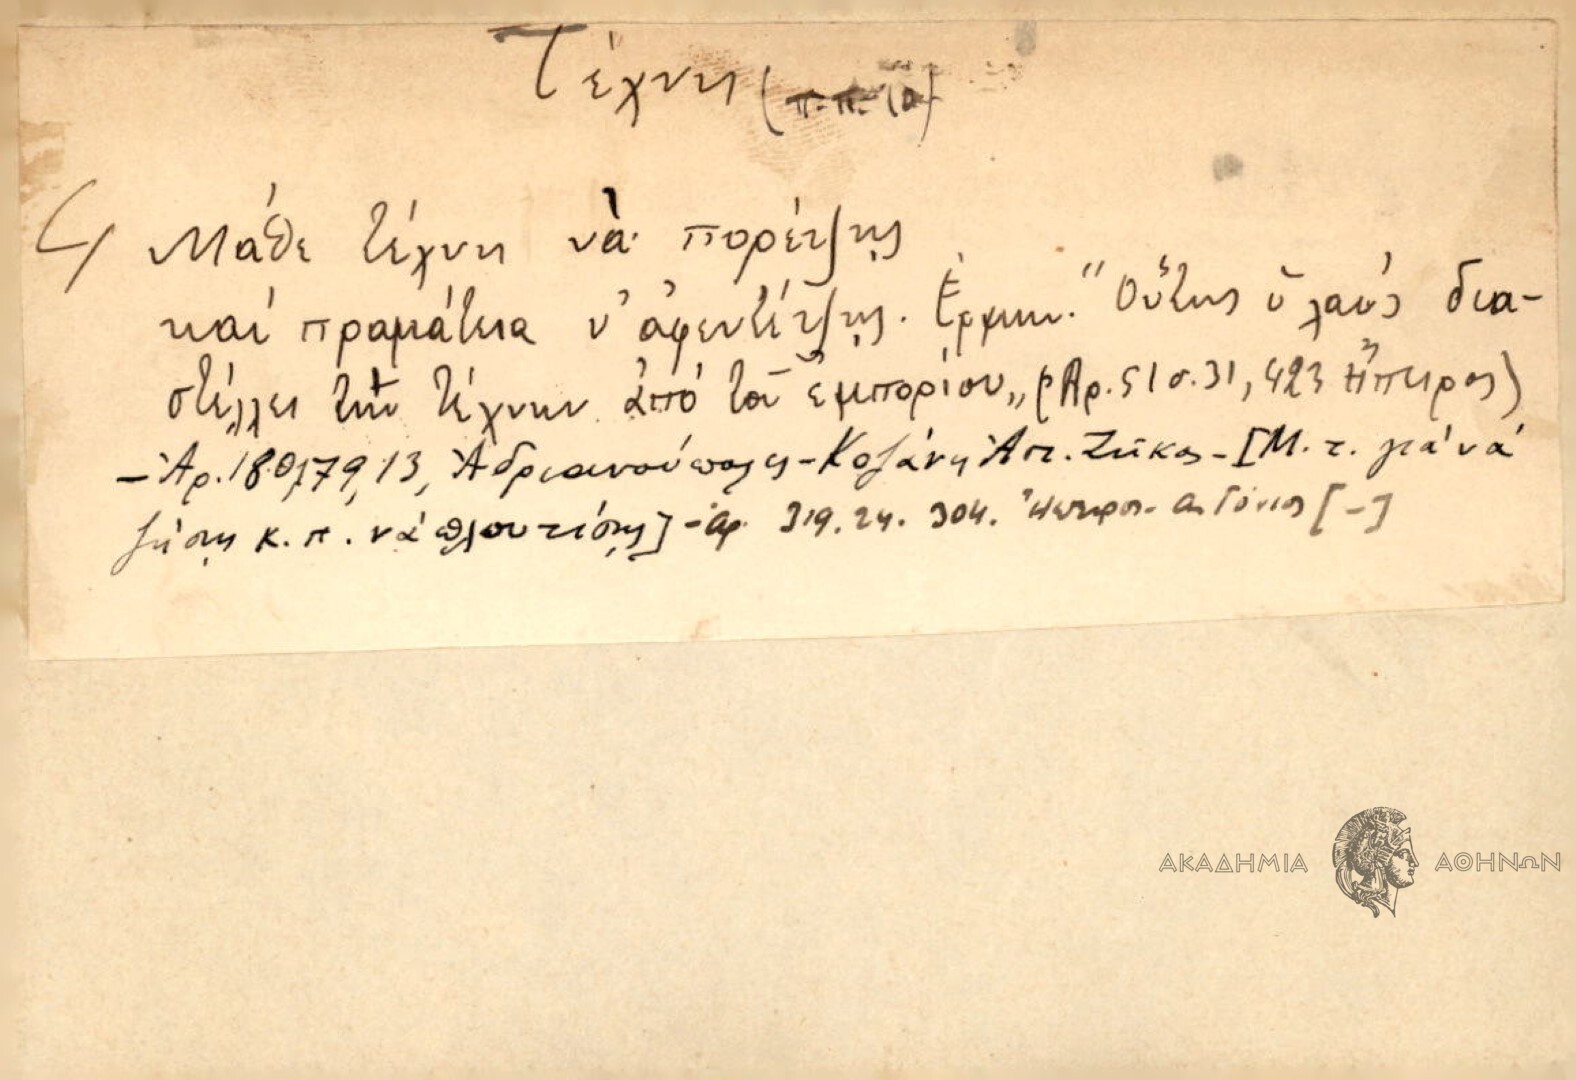 Τέχνη (π.π. 10)
Μάθε τέχνη νὰ πορέψῃς
καί πραμάτεια ν' ἀφεντέψῃς. Ἑρμην. "Οὕτως ὁ λαός δια-
στέλλει τὴν τέχνην ἀπό τοῦ ἐμπορίου„ (Ἀρ. 51 σ. 31, 423 Ἤπειρος)
– Ἀρ. 180, 79, 13, Ἀδριανούπολις – Κοζάνη Ἀπ. Ζήκος – [Μ. τ. γιά νά
ζήσῃς κ. π. νά πλουτίσῃς] – Ἀρ. 319. 24. 304. Ἤπειρος. [–]
ΑΚΑΔΗΜΙΑ ΑΘΗΝΩΝ